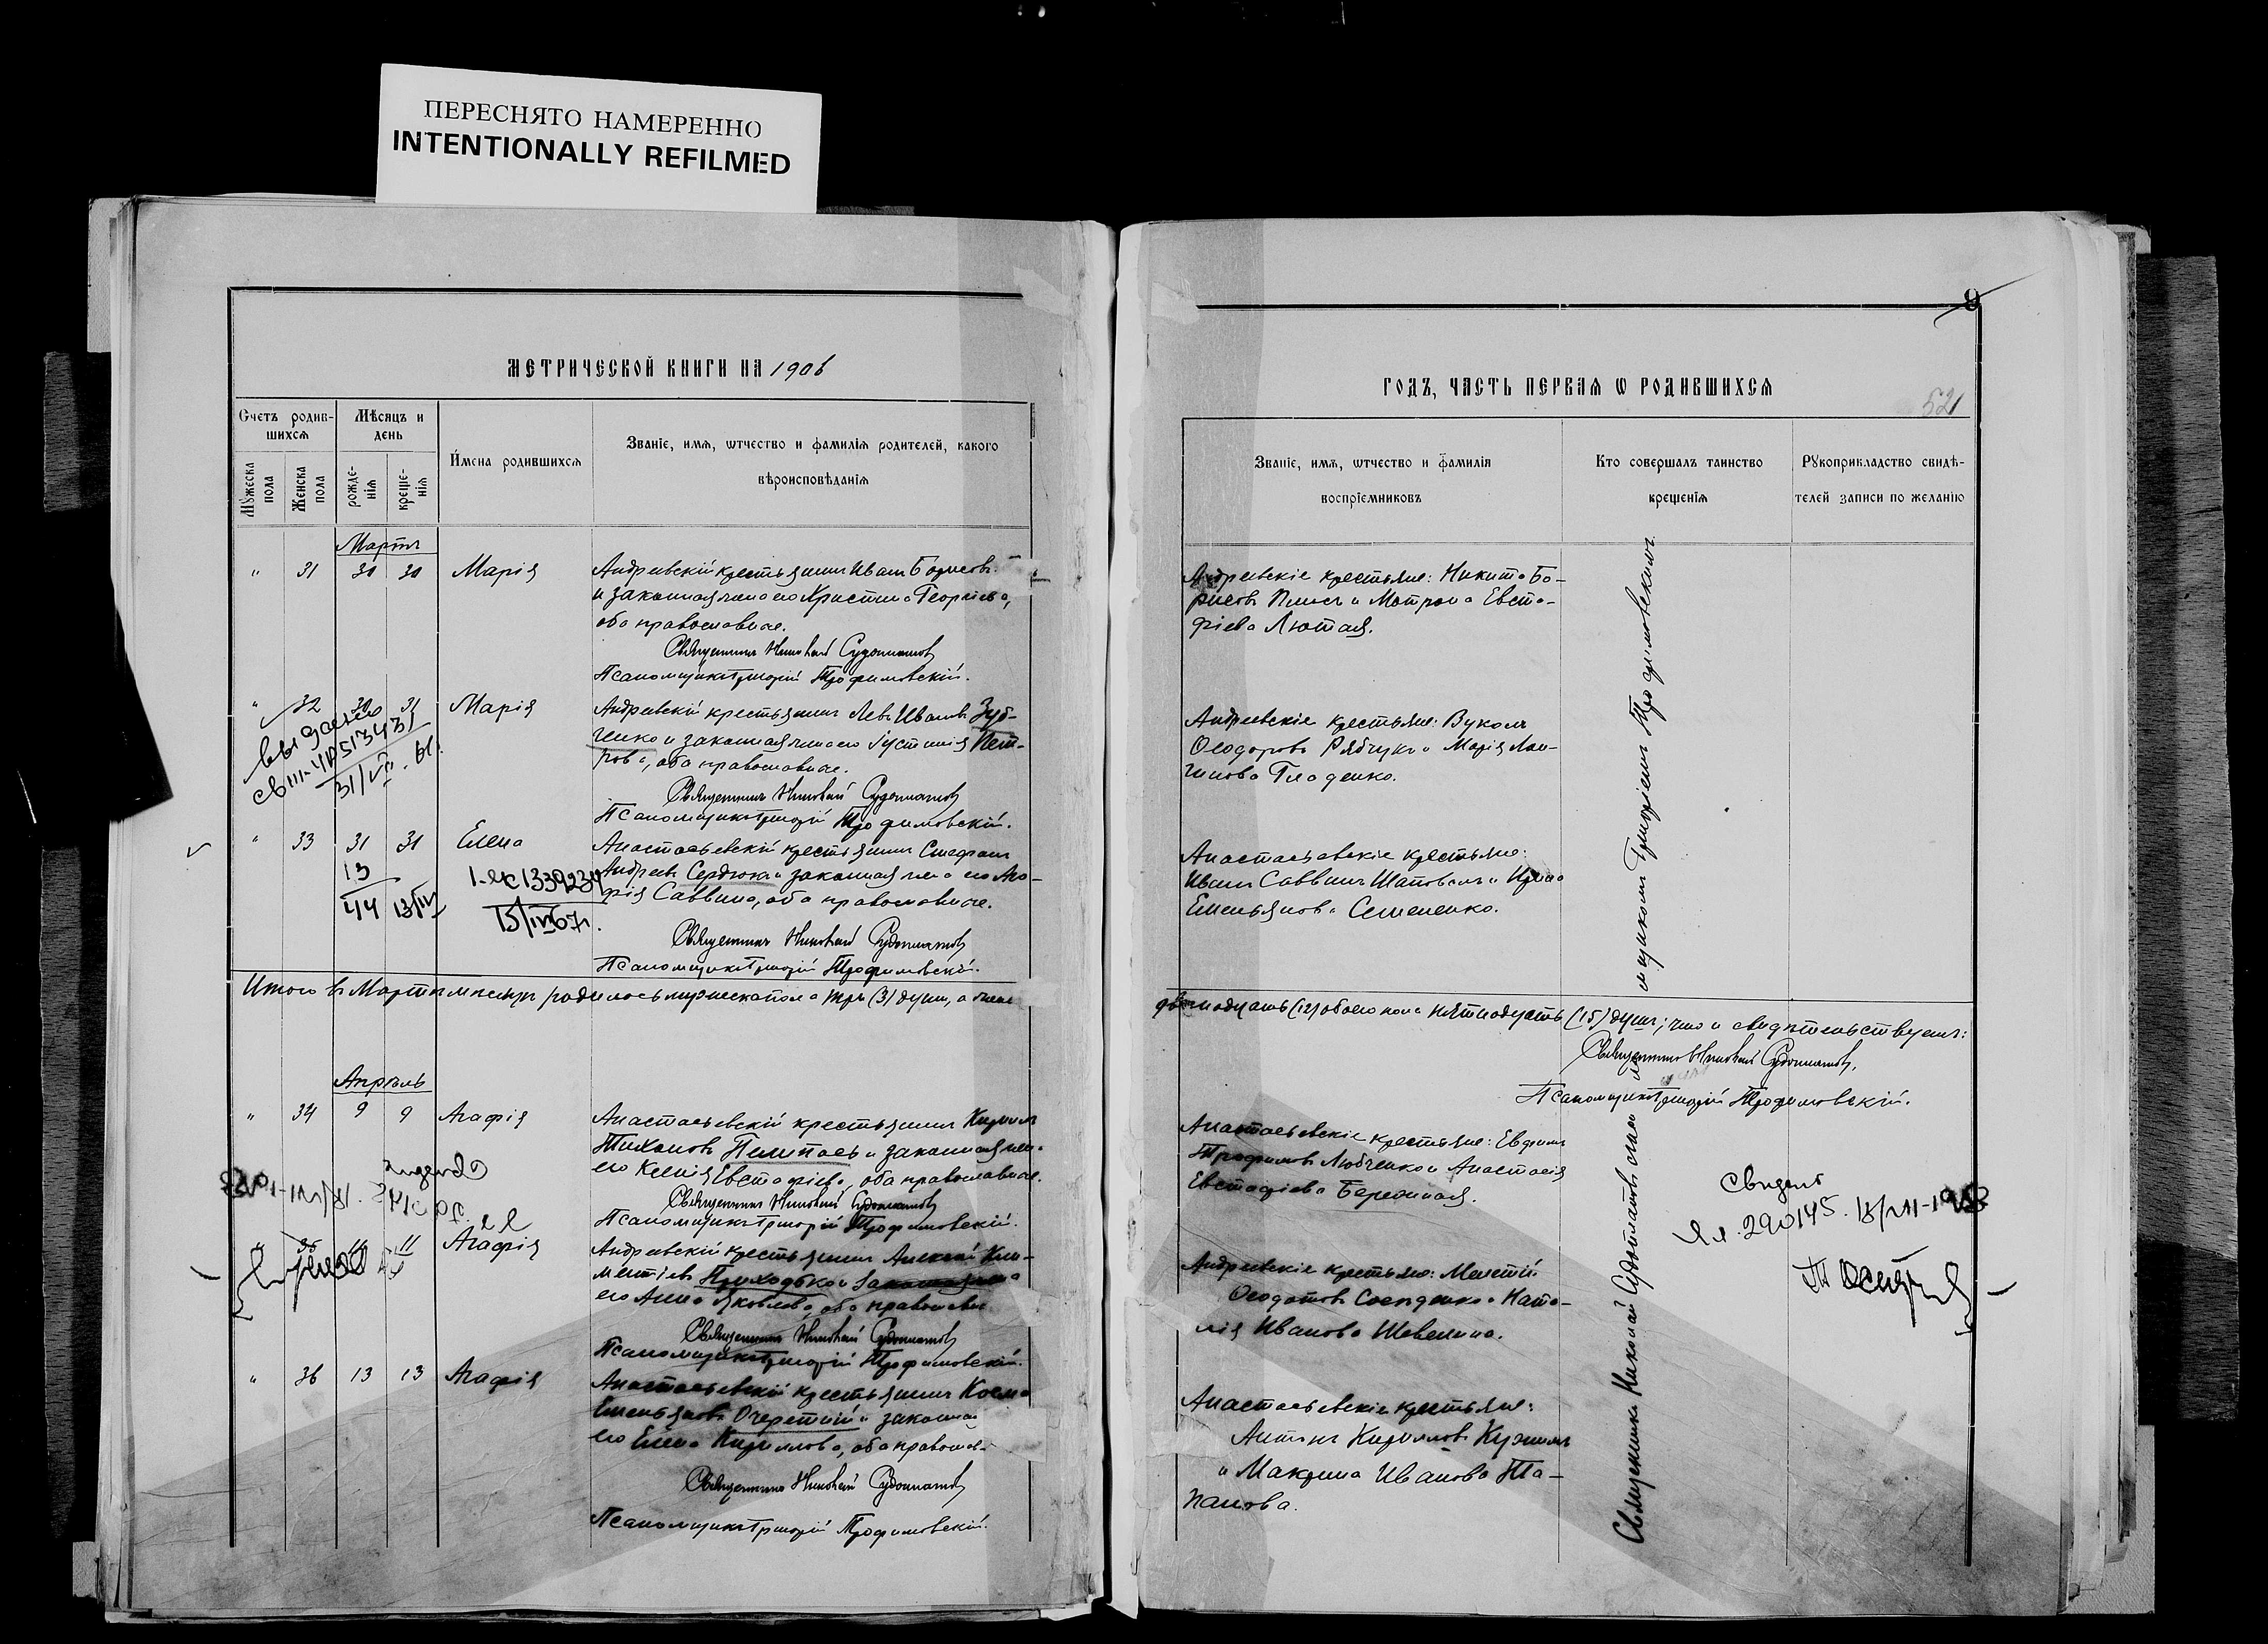 ПЕРЕСНЯТО НАМЕРЕННО
INTENTIONALLY REFILMED
МЕТРИЧЕСКОЙ КНИГИ НА 1906
Счетъ родив-
шихся
Мѣсяцъ и
день
Мужеска
пола
Женска
пола
рожде-
нія
креще-
нія
Имена родившихся
Званіе, имя, ѿтчество и фамилія родителей, какого
вѣроисповѣданія
Мартъ
" 31 30 30 Марія
Андреевскій крестьянинъ Иванъ Борисовъ
и законная жена его Христина Георгіева,
оба православные.
Священникъ Николай Судоплатовъ
Псаломщикъ Григорій Трофимовскій.
" 32 30 31 Марія
Андреевскій крестьянинъ Левъ Ивановъ Зуб-
ченко и законная жена его Іустинія Пет-
рова, оба православные.
Священникъ Николай Судоплатовъ
Псаломщикъ Григорій Трофимовскій.
выдано
31/VII
" 33 31 31 Елена
Анастасьевскій крестьянинъ Стефанъ
Андреевъ Сердюкъ и законная жена его Ага-
фія Саввина, оба православные.
Священникъ Николай Судоплатовъ
Псаломщикъ Григорій Трофимовскій.
13
44 13/IV
1339234
Итого въ Мартѣ мѣсяцѣ родилось мужеска пола три (3) души, а женска
Апрѣль
" 34 9 9 Агафія
Анастасьевскій крестьянинъ Кириллъ
Тихоновъ и законная жена
его Ксенія Евстафіева, оба православные.
Священникъ Николай Судоплатовъ
Псаломщикъ Григорій Трофимовскій.
" 35 11 11 Агафія
Андреевскій крестьянинъ Алексѣй Кли-
ментіевъ Приходько и законная жена
его Анна Яковлева, оба православные
Священникъ Николай Судоплатовъ
Псаломщикъ Григорій Трофимовскій.
" 36 13 13 Агафія
Анастасьевскій крестьянинъ Косма
Емельяновъ Очеретній и законная
его Елена Кириллова, оба православ
Священникъ Николай Судоплатовъ
Псаломщикъ Григорій Трофимовскій.
8
ГОДЪ, ЧАСТЬ ПЕРВАЯ Ѡ РОДИВШИХСЯ
521
Званіе, имя, ѿтчество и фамилія
воспріемниковъ
Кто совершалъ таинство
крещенія
Рукоприкладство свидѣ-
телей записи по желанію
Андреевскіе крестьяне: Никита Бо-
рисовъ и Матрона Евста-
фіева Лютая.
Андреевскіе крестьяне: Вуколъ
Ѳеодоровъ Рябчукъ и Марія Лон-
гинова Гладенко.
Анастасьевскіе крестьяне:
Иванъ Саввинъ Шаповалъ и Ирина
Емельянова Семененко.
двѣнадцать (12) обоего пола пятнадцать (15) душъ; что и свидѣтельствуемъ:
Священникъ Николай Судоплатовъ,
Псаломщикъ Григорій Трофимовскій.
Анастасьевскіе крестьяне: Евфимъ
Трофимовъ Любченко и Анастасія
Евстафіева Бережная.
Андреевскіе крестьяне: Мелетій
Ѳеодотовъ и Ната-
лія Иванова Шевелина.
Анастасьевскіе крестьяне:
Антонъ Кирилловъ
и Макрина Иванова Та-
панова.
Священникъ Николай Судоплатовъ съ псало
мщикомъ Григоріемъ Трофимовскимъ
290145